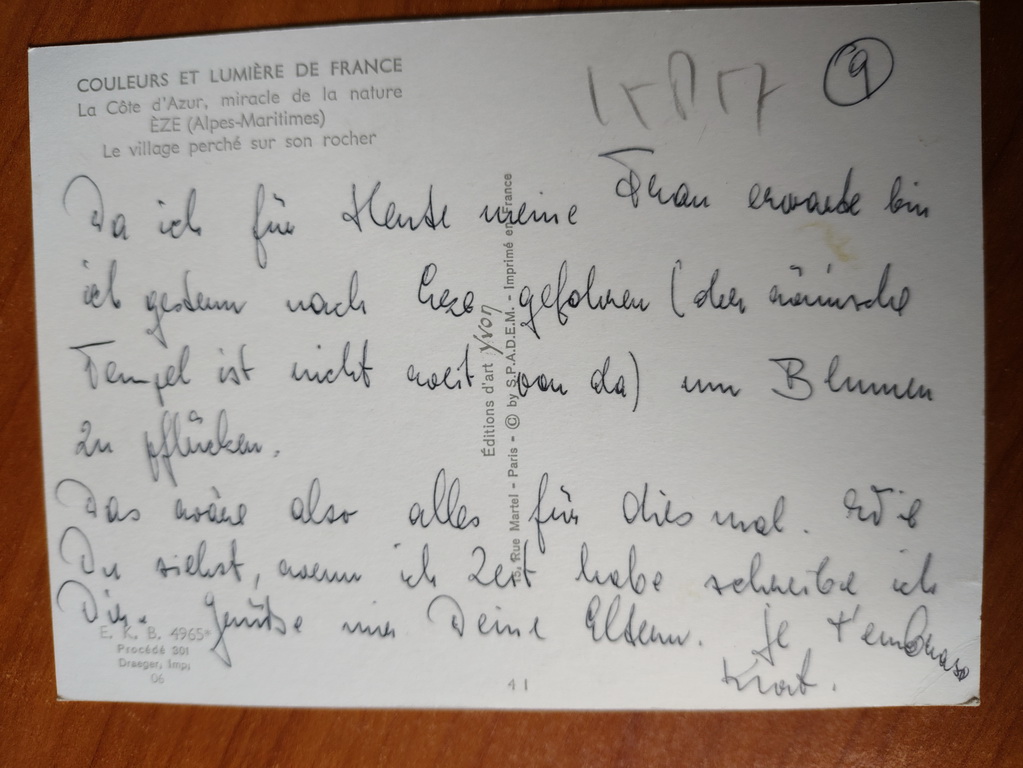 COULEURS ET LUMIÈRE DE FRANCE
La Côte d'Azur, miracle de la nature
ÈZE (Alpes-Maritimes)
Le village perché sur son rocher
9
Da ich für Heute meine Frau erwarte bin
ich gestern nach Eeze gefahren (der römische
Tempel ist nicht weit von da) um Blumen
zu pflücken.
Das wäre also alles für dies mal. Wie
Du siehst, wenn ich Zeit habe schreibe ich
Dir. Grüsse mir Deine Eltern. Je t'embrasse
Éditions d'art Yvon
Rue Martel - Paris - © by S.P.A.D.E.M. - Imprimé en France
E. K. B. 4965
Procédé 301
Draeger, Imp;
06
41